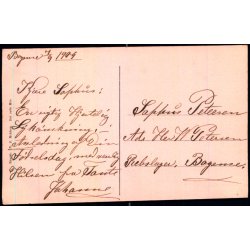 Bogense 1/9 1909
Kjære Sophus!
En rigtig Hjertelig
Lykønskning i
anledning af Din
Födselsdag, med venlig
Hilsen fra Tante
Johanne
Sophus Petersen
Adr. Her W. Petersen
Rebslager, Bogense.